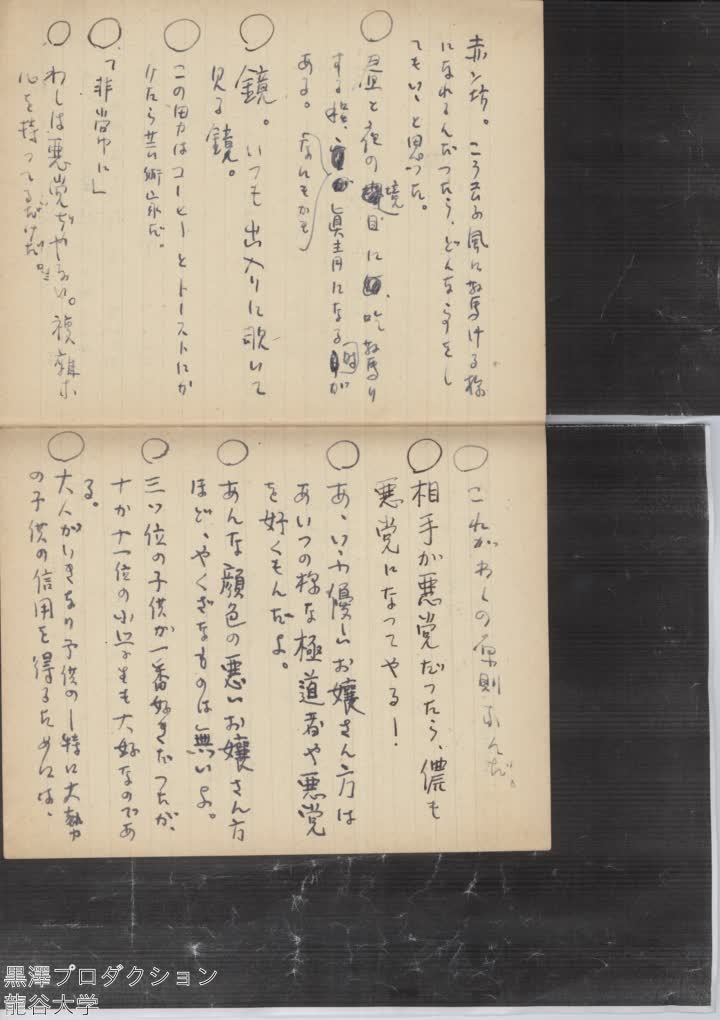 赤ン坊。ころころ風に駈ける様
になれるんだつたら、どんな事をし
てもいゝと思つた。
○昼と夜の境目に
する様、眞青になる時が
ある。(なんもかも)
○鏡。いつも出入りに覗いて
見る鏡。
○この男はコーヒーとトーストにか
けたら芸術家だ。
○「非常に」
○わしは悪党ぢやない。複雑な
心を持つてるだけだ。
○これがわしの原則なんだ。
○相手が悪党だつたら、儂も
悪党になつてやる!
○あゝいふ優しいお嬢さん方は
あいつの様な極道者や悪党
を好くもんだよ。
○あんな顔色の悪いお嬢さん方
ほど、やくざなものは無いよ。
○三ツ位の子供が一番好きだつたが、
十か十一位の小学生も大好なのであ
る。
○大人がいきなり子供の—特に大勢
の子供の信用を得るためには、
黒澤プロダクション
龍谷大学